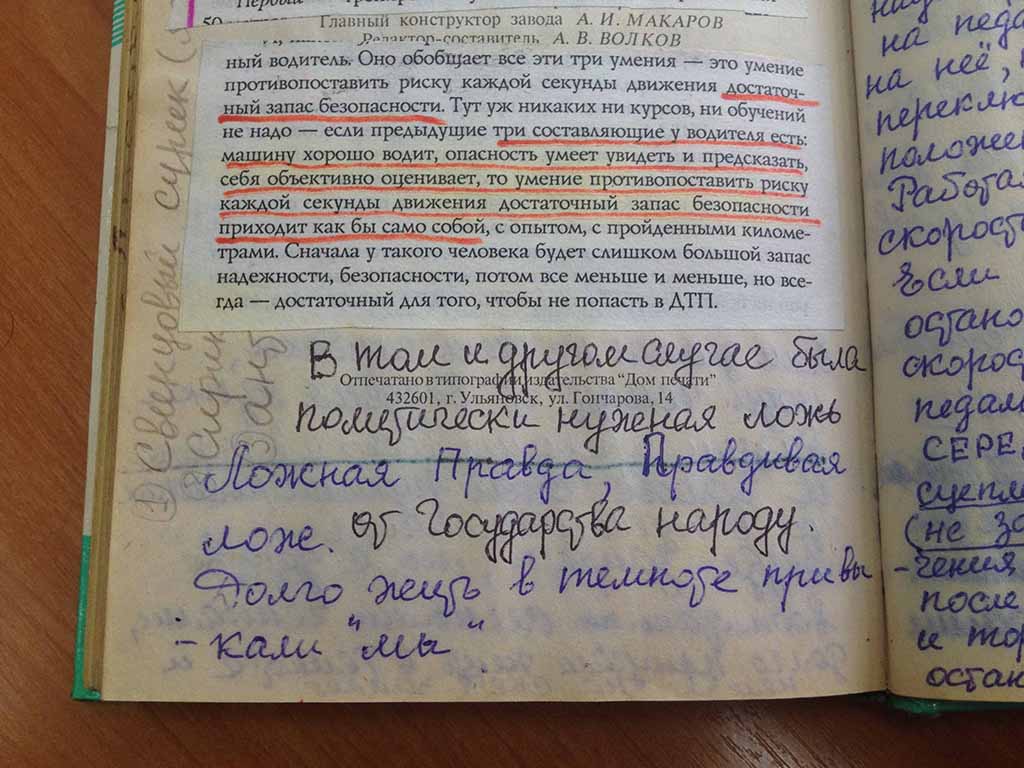 Главный конструктор завода А. И. МАКАРОВ
Редактор-составитель А. В. ВОЛКОВ
ный водитель. Оно обобщает все эти три умения — это умение
противопоставить риску каждой секунды движения достаточ-
ный запас безопасности. Тут уж никаких ни курсов, ни обучений
не надо — если предыдущие три составляющие у водителя есть:
машину хорошо водит, опасность умеет увидеть и предсказать,
себя объективно оценивает, то умение противопоставить риску
каждой секунды движения достаточный запас безопасности
приходит как бы само собой, с опытом, с пройденными киломе-
трами. Сначала у такого человека будет слишком большой запас
надежности, безопасности, потом все меньше и меньше, но все-
гда — достаточный для того, чтобы не попасть в ДТП.
В том и другом случае была
Отпечатано в типографии издательства “Дом печати”
432601, г. Ульяновск, ул. Гончарова, 14
политически нуженая ложь
Ложная Правда, Правдивая
лож. от Государства народу.
Долго жить в темноте привы
- кали "мы"
1) Свинцовый сурик
на педа
на неё,
переклю
положен
Работа
скорост
Если
остано
скорос
педал
СЕРЕ
сцепл
(не за
-чения
после
и тор
остан